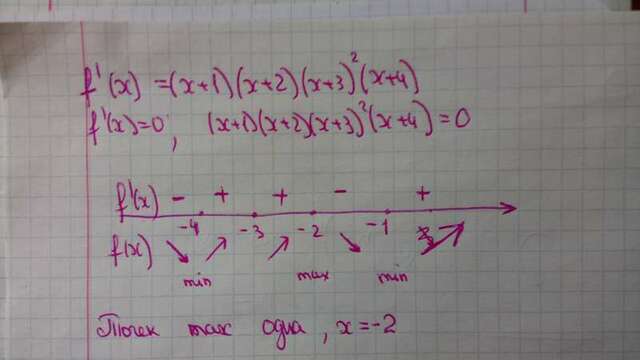 f'(x) = (x+1)(x+2)(x+3)²(x+4)
f'(x)=0, (x+1)(x+2)(x+3)²(x+4) = 0
f'(x) - + + - +
-4 -3 -2 -1
f(x) ↘ ↗ ↗ ↘ ↗
min max min
Точек max одна, x=-2